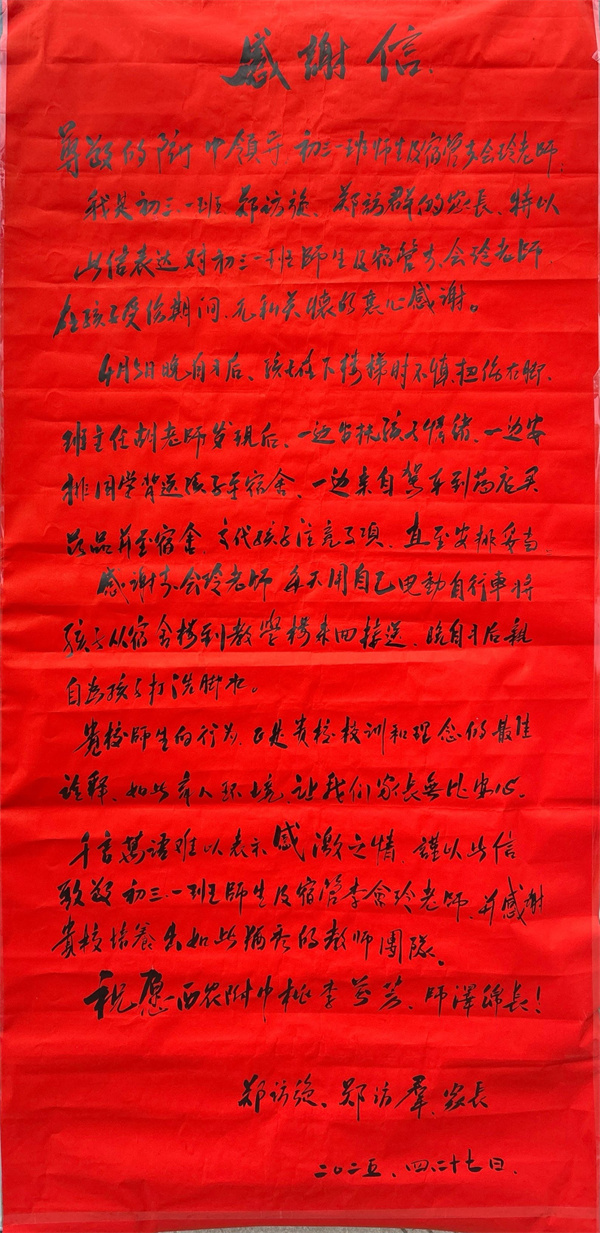 感謝信
尊敬的附中領导、初三一班师生及宿管李会玲老师：
我是初三一班郑访旋、郑访群的家長、特以
此信表达对初三一班師生及宿管李会玲老師
在孩子受伤期间、无私关懷的衷心感謝。
4月3日晚自习后、孩子在下楼梯时不慎扭伤右脚、
班主任胡老师发現后、一边安抚孩子情绪、一边安
排同学背送孩子至宿舍、一边亲自驾车到药店买
药品并至宿舍、交代孩子注意事项、直至安排妥当。
感谢李会玲老师每天用自己电動自行車将
孩子从宿舍楼到教學楼来回接送、晚自习后親
自为孩子打洗脚水。
貴校師生的行为、正是貴校校训和理念的最佳
诠释、如此育人环境、让我们家長無比安心。
千言萬语难以表示感激之情、謹以此信
致敬初三一班師生及宿管李會玲老師、并感謝
貴校培養出如此優秀的教师團隊。
祝愿西农附中桃李芬芳、師澤綿長！
郑访旋、郑访羣、家長
二〇二五、四、二十七日、